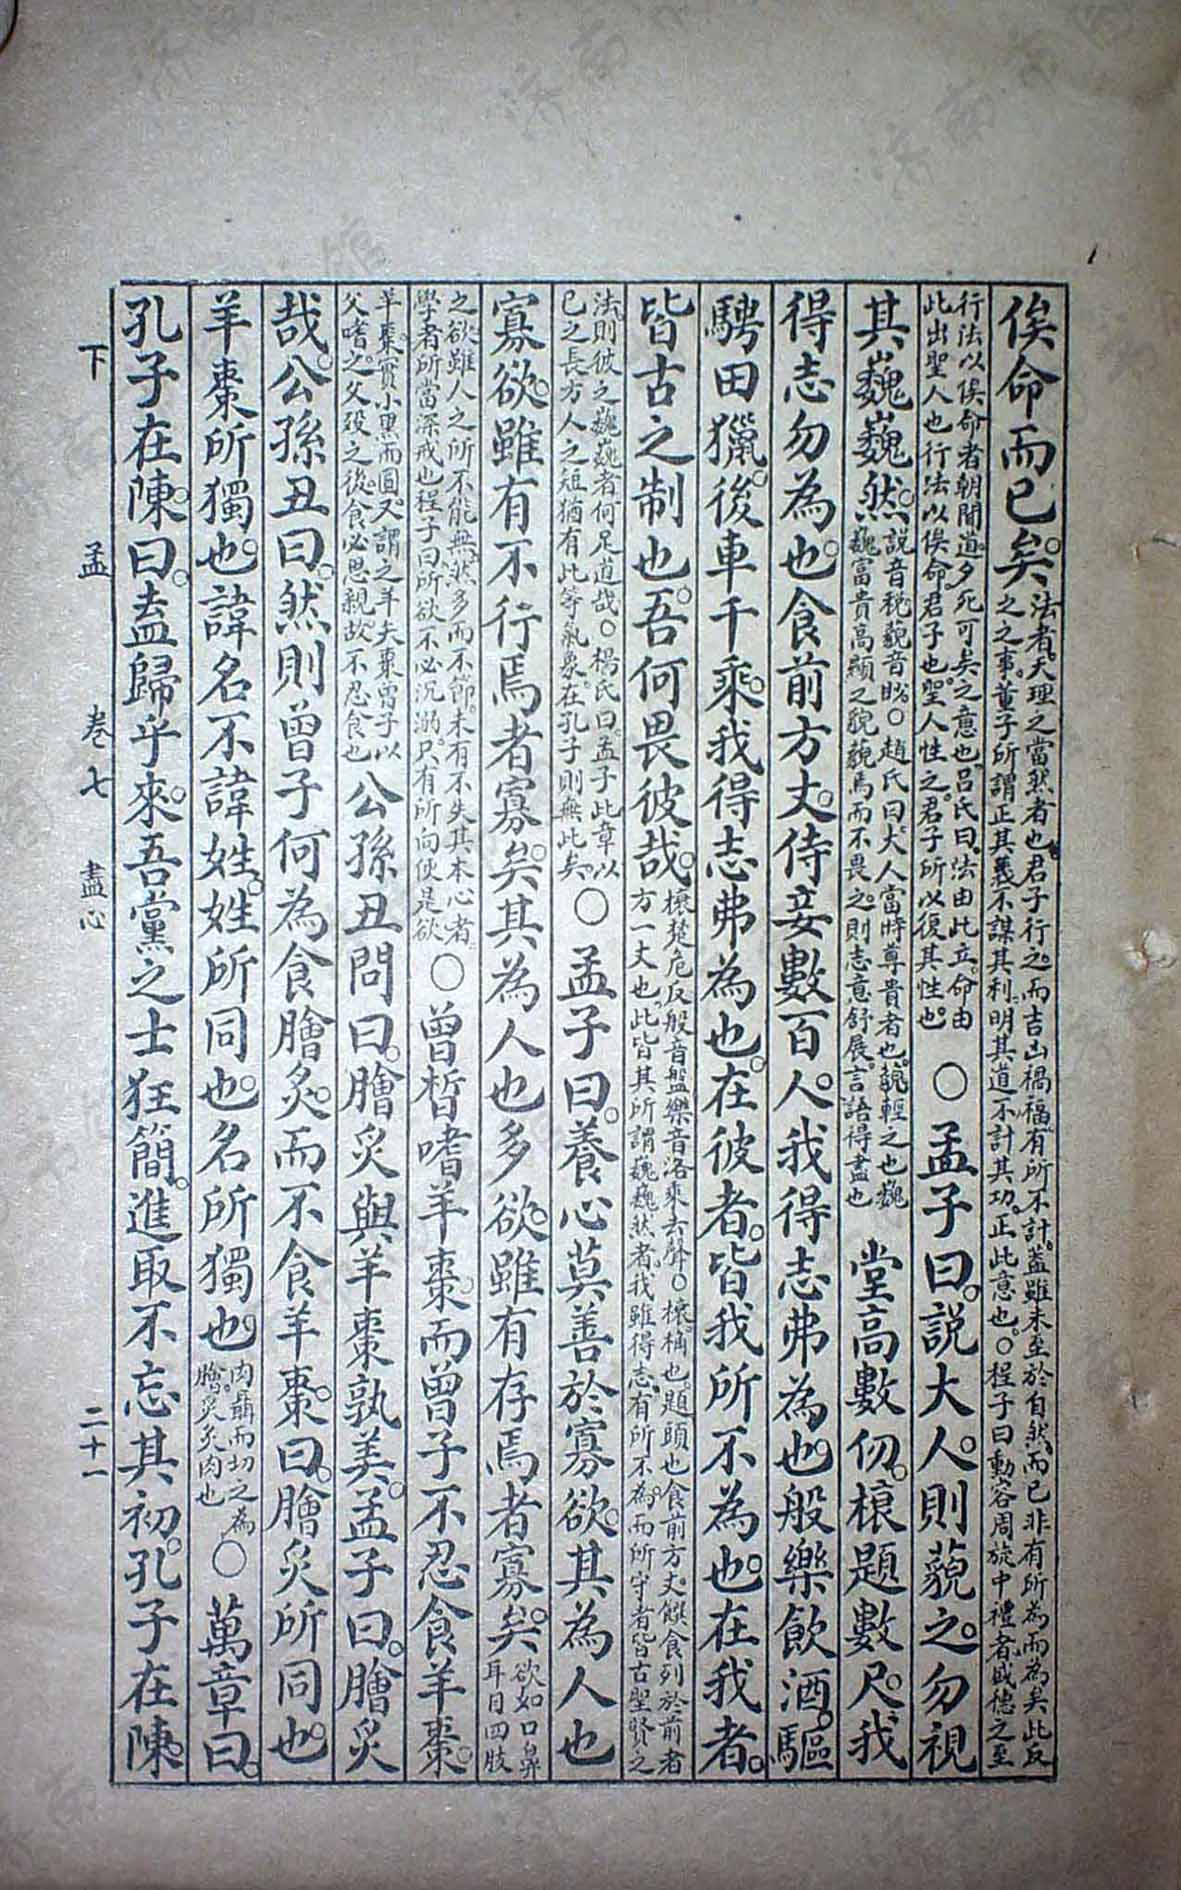 俟命而已矣。法者。天理之當然者也。君子行之。而吉凶禍福。有所不計。蓋雖未至於自然。而已非有所為而為矣。此反
之之事。董子所謂正其義不謀其利。明其道不計其功。正此意也。○程子曰。動容周旋中禮者。盛德之至
行法以俟命者。朝聞道夕死可矣之意也。呂氏曰。法由此立。命由
此出。聖人也。行法以俟命。君子也。聖人性之。君子所以復其性也。
○孟子曰。說大人。則藐之。勿視
其巍巍然。說音稅。藐音眇。○趙氏曰。大人。當時尊貴者也。藐。輕之也。巍
巍。富貴高顯之貌。藐焉而不畏之。則志意舒展。言語得盡也
堂高數仞。榱題數尺。我
得志勿為也。食前方丈。侍妾數百人。我得志弗為也。般樂飲酒。驅
騁田獵。後車千乘。我得志弗為也。在彼者。皆我所不為也。在我者。
皆古之制也。吾何畏彼哉。榱楚危反。般音盤。樂音洛。乘去聲。○榱。桷也。題。頭也。食前方丈。饌食列於前者
方一丈也。此皆其所謂巍巍然者。我雖得志。有所不為。而所守者皆古聖賢之
法。則彼之巍巍者。何足道哉。○楊氏曰。孟子此章。以
己之長。方人之短。猶有此等氣象。在孔子則無此矣。
○孟子曰。養心莫善於寡欲。其為人也
寡欲。雖有不行焉者寡矣。其為人也多欲。雖有存焉者寡矣。欲如口鼻
耳目四肢
之欲。雖人之所不能無。然多而不節。未有不失其本心者。
學者所當深戒也。程子曰。所欲不必沉溺。只有所向便是欲
○曾晳嗜羊棗。而曾子不忍食羊棗。
羊棗。實小黑而圓。又謂之羊矢棗。曾子以
父嗜之。父歿之後。食必思親。故不忍食也
公孫丑問曰。膾炙與羊棗孰美。孟子曰。膾炙
哉。公孫丑曰。然則曾子何為食膾炙。而不食羊棗。曰。膾炙所同也。
羊棗所獨也。諱名不諱姓。姓所同也。名所獨也。肉聶而切之為
膾。炙。炙肉也
○萬章曰。
孔子在陳。曰。盍歸乎來。吾黨之士狂簡。進取不忘其初。孔子在陳。
下 孟 卷七 盡心 二十一